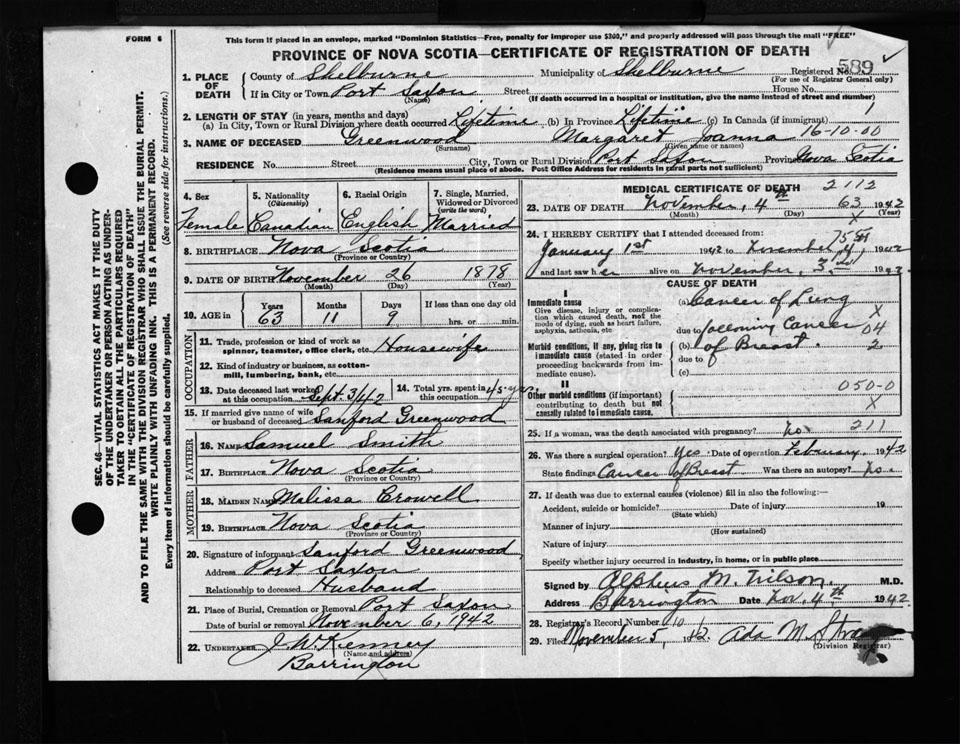 FORM 6
This form if placed in an envelope, marked "Dominion Statistics—Free, penalty for improper use $300," and properly addressed will pass through the mail "FREE"
PROVINCE OF NOVA SCOTIA—CERTIFICATE OF REGISTRATION OF DEATH
SEC. 46—VITAL STATISTICS ACT MAKES IT THE DUTY
OF THE UNDERTAKER OR PERSON ACTING AS UNDER-
TAKER TO OBTAIN ALL THE PARTICULARS REQUIRED
IN THE "CERTIFICATE OF REGISTRATION OF DEATH"
AND TO FILE THE SAME WITH THE DIVISION REGISTRAR WHO SHALL ISSUE THE BURIAL PERMIT.
WRITE PLAINLY WITH UNFADING INK. THIS IS A PERMANENT RECORD.
Every item of information should be carefully supplied. (See reverse side for instructions.)
1. PLACE OF DEATH
County of Shelburne Municipality of Shelburne Registered No. 589
(For use of Registrar General only)
If in City or Town Port Saxon Street House No.
(Name) (If death occurred in a hospital or institution, give the name instead of street and number)
2. LENGTH OF STAY (in years, months and days)
(a) In City, Town or Rural Division where death occurred Lifetime (b) In Province Lifetime (c) In Canada (if immigrant) 1
3. NAME OF DECEASED Greenwood Margaret Joanna 16-10-00
(Surname) (Given name or names)
RESIDENCE No. Street City, Town or Rural Division Port Saxon Province Nova Scotia
(Residence means usual place of abode. Post Office Address for residents in rural parts not sufficient)
4. Sex Female
5. Nationality (Citizenship) Canadian
6. Racial Origin English
7. Single, Married, Widowed or Divorced (write the word) Married
8. BIRTHPLACE Nova Scotia
(Province or Country)
9. DATE OF BIRTH November 26 1878
(Month) (Day) (Year)
10. AGE in Years 63 Months 11 Days 9 If less than one day old hrs. or min.
OCCUPATION
11. Trade, profession or kind of work as spinner, teamster, office clerk, etc. Housewife
12. Kind of industry or business, as cotton-mill, lumbering, bank, etc.
13. Date deceased last worked at this occupation Sept. 3/42
14. Total yrs. spent in this occupation 45 yrs.
15. If married give name of wife or husband of deceased Sanford Greenwood
FATHER
16. NAME Samuel Smith
17. BIRTHPLACE Nova Scotia
(Province or Country)
MOTHER
18. MAIDEN NAME Malissa Crowell
19. BIRTHPLACE Nova Scotia
(Province or Country)
20. Signature of informant Sanford Greenwood
Address Port Saxon
Relationship to deceased Husband
21. Place of Burial, Cremation or Removal Port Saxon
Date of burial or removal November 6, 1942
22. UNDERTAKER J. W. Kenney
(Name and address)
Barrington
MEDICAL CERTIFICATE OF DEATH 2112
23. DATE OF DEATH November, 4th 63 1942
(Month) (Day) X (Year)
24. I HEREBY CERTIFY that I attended deceased from:
January 1st 1942 to November 4, 1942
and last saw her alive on November, 3rd 1942
CAUSE OF DEATH
I
Immediate cause
Give disease, injury or complication which caused death, not the mode of dying, such as heart failure, asphyxia, asthenia, etc
(a) Cancer of Lung X
due to following Cancer 04
Morbid conditions, if any, giving rise to immediate cause (stated in order proceeding backwards from immediate cause).
(b) of Breast. 2
due to
(c)
II
Other morbid conditions (if important) contributing to death but not causally related to immediate cause.
050-0
X
25. If a woman, was the death associated with pregnancy? No. 211
26. Was there a surgical operation? Yes. Date of operation February, 1942
State findings Cancer of Breast Was there an autopsy? No.
27. If death was due to external causes (violence) fill in also the following:
Accident, suicide or homicide? Date of injury 19
(State which)
Manner of injury
(How sustained)
Nature of injury
Specify whether injury occurred in industry, in home, or in public place
Signed by M. M.D.
Address Barrington Date Nov. 4th 1942
28. Registrar's Record Number 10
29. Filed November 5, 1942 Ada M.
(Division Registrar)